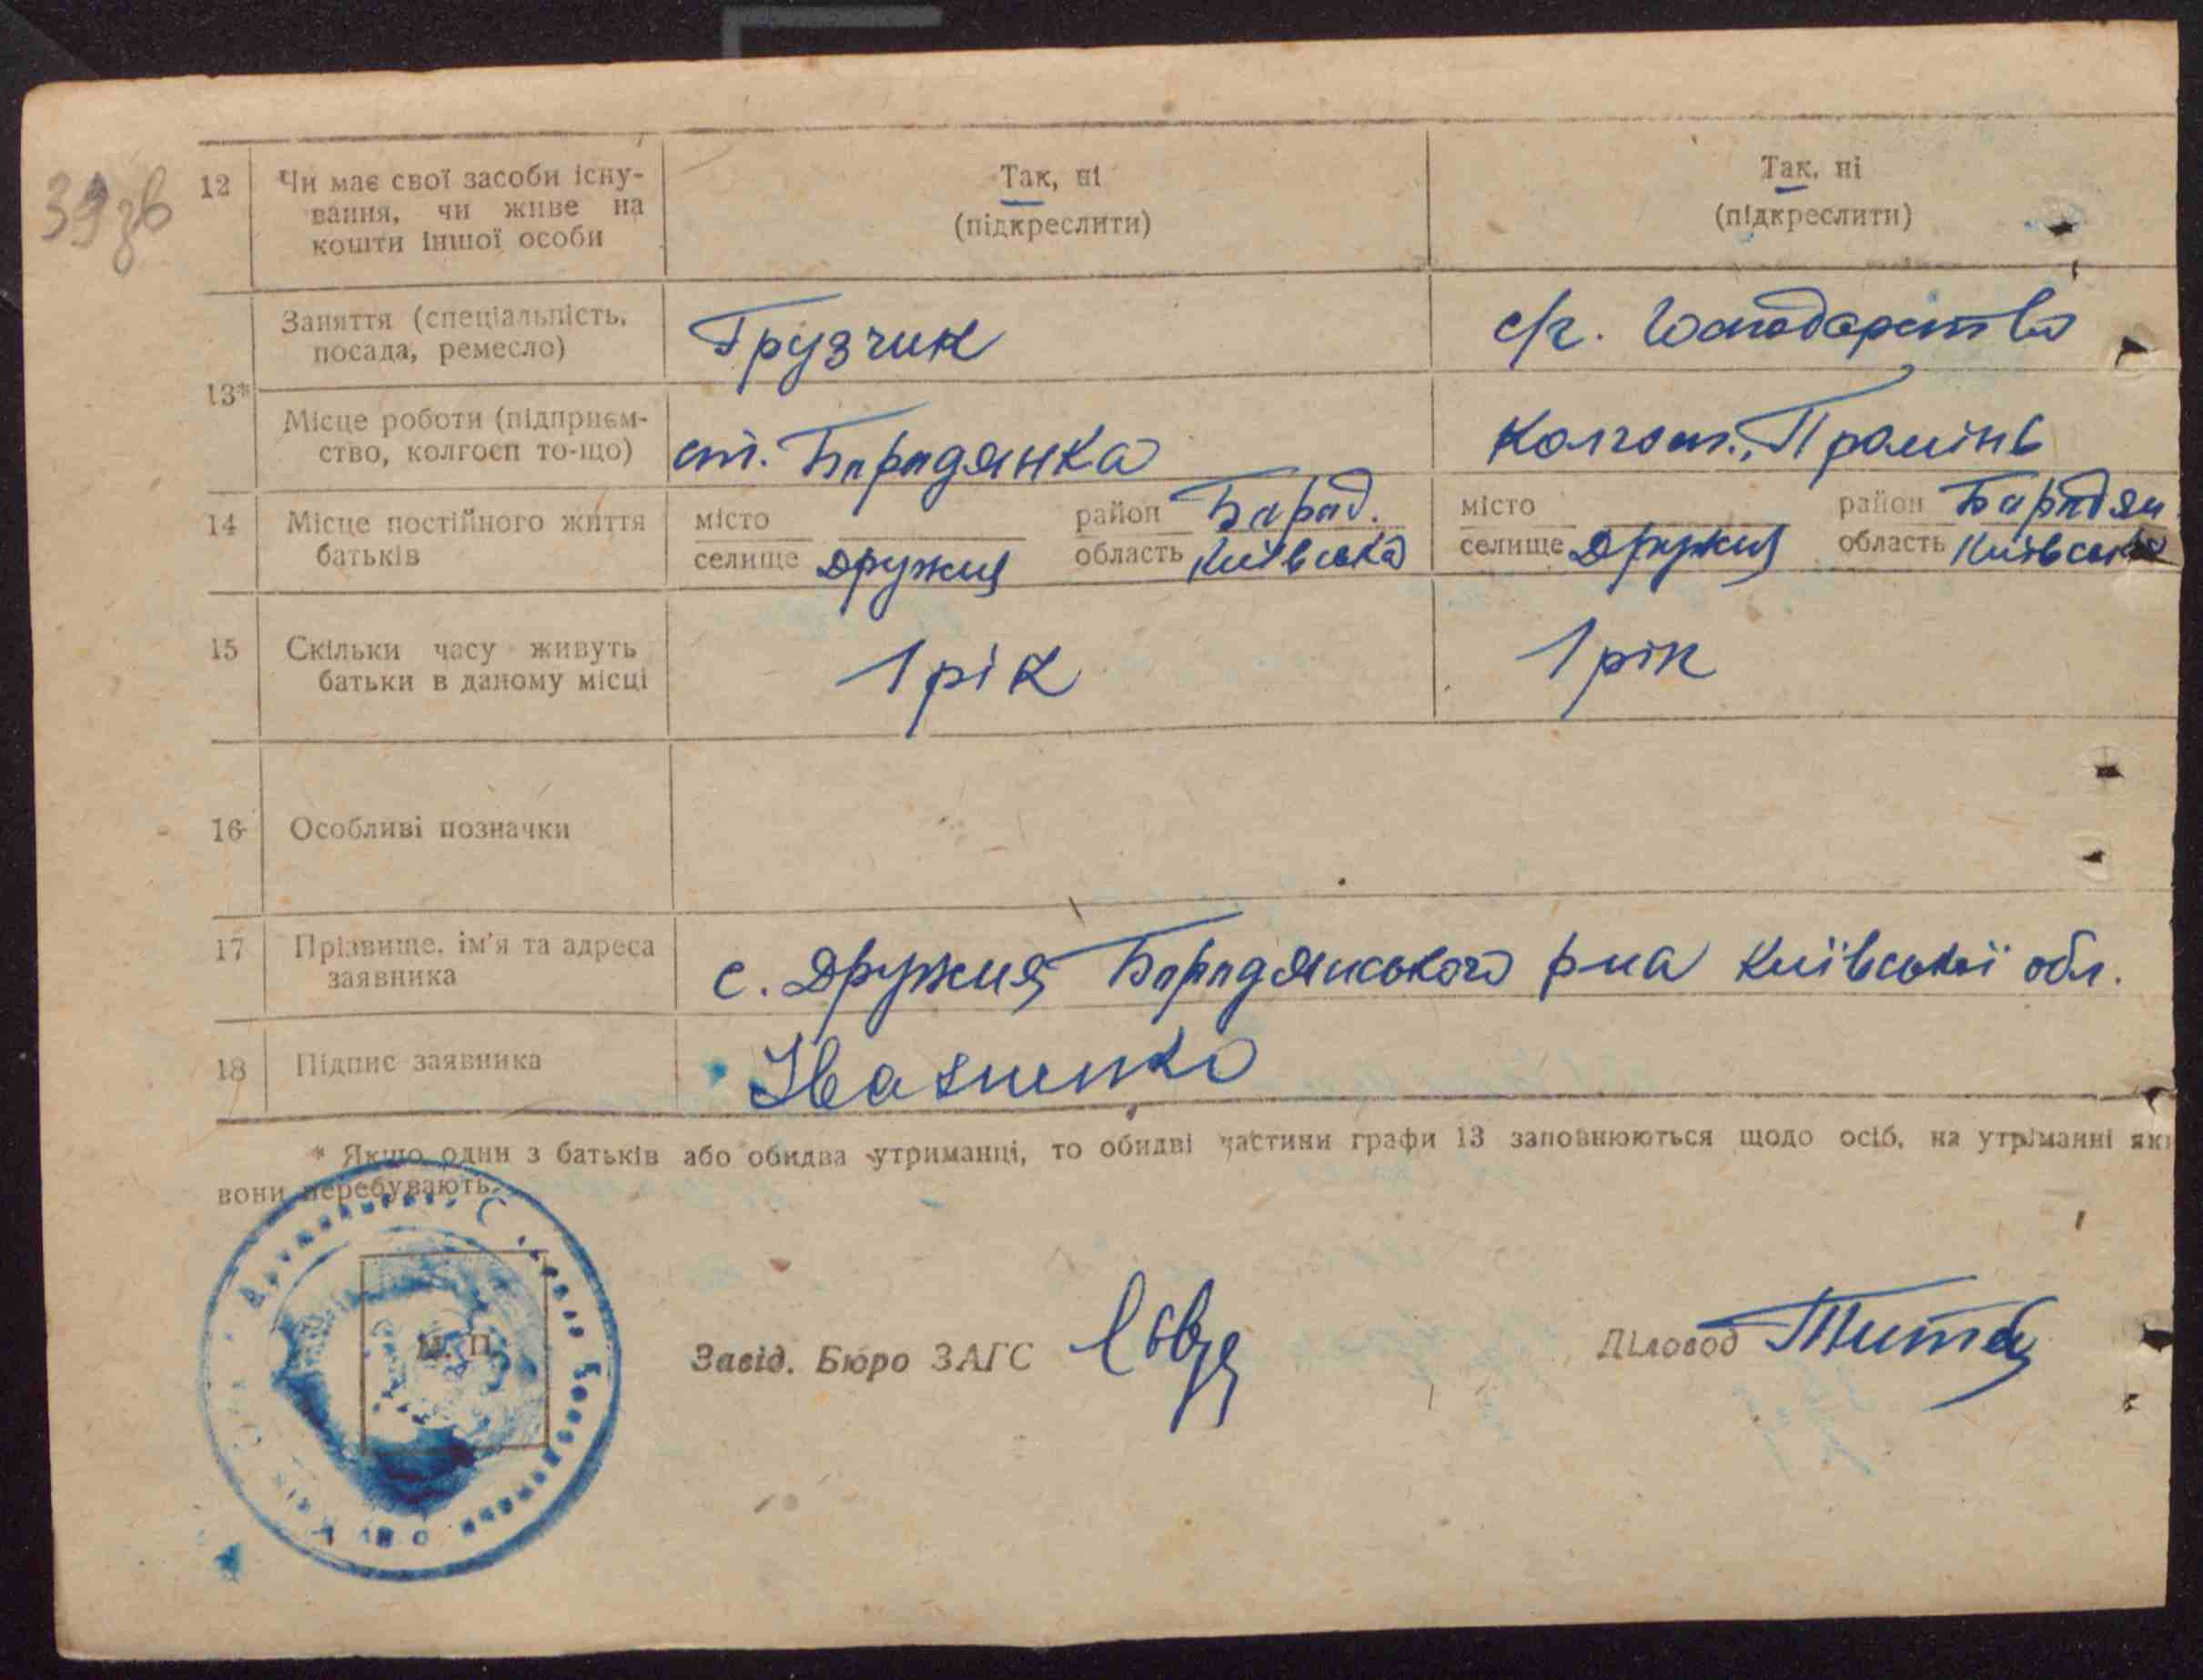 39 зв
12 Чи має свої засоби існу-
вання, чи живе на
кошти іншої особи
Так, ні
(підкреслити)
Так, ні
(підкреслити)
13*
Заняття (спеціальність,
посада, ремесло)
Грузчик
с/г. Господарство
Місце роботи (підприєм-
ство, колгосп то-що)
ст. Бородянка
Колгосп. „Промінь
14 Місце постійного життя
батьків
місто
селище Дружня
район Бород.
область Київська
місто
селище Дружня
район Бородян.
область Київська
15 Скільки часу живуть
батьки в даному місці
1 рік
1 рік
16 Особливі позначки
17 Прізвище, ім'я та адреса
заявника
с. Дружня Бородянського р-на Київської обл.
18 Підпис заявника
* Якщо один з батьків або обидва утриманці, то обидві частини графи 13 заповнюються щодо осіб, на утриманні яки
вони перебувають.
М. П.
Завід. Бюро ЗАГС
Діловод